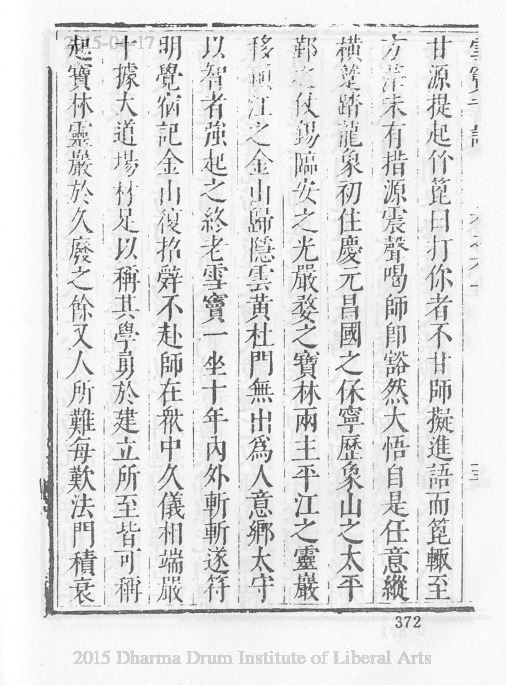 雪竇寺誌
甘源提起竹篦曰打你者不甘師擬進語而篦輙至
方若未有措源震聲喝師即豁然大悟自是任意縱
橫蹴踏龍象初住慶元昌國之保寧歷象山之太平
鄞之仗錫臨安之光嚴婺之寶林兩主平江之靈巖
移鎮江之金山歸隱雲黃杜門無出為人意鄉太守
以智者強起之終老雪竇一坐十年內外斬斬遂符
明覺宿記金山復招辭不赴師在眾中久儀相端嚴
十據大道場材足以稱其學勇於建立所至皆可稱
起寶林靈嚴於久廢之餘又人所難每歎法門積衰
372
2015-04-17
2015 Dharma Drum Institute of Liberal Arts